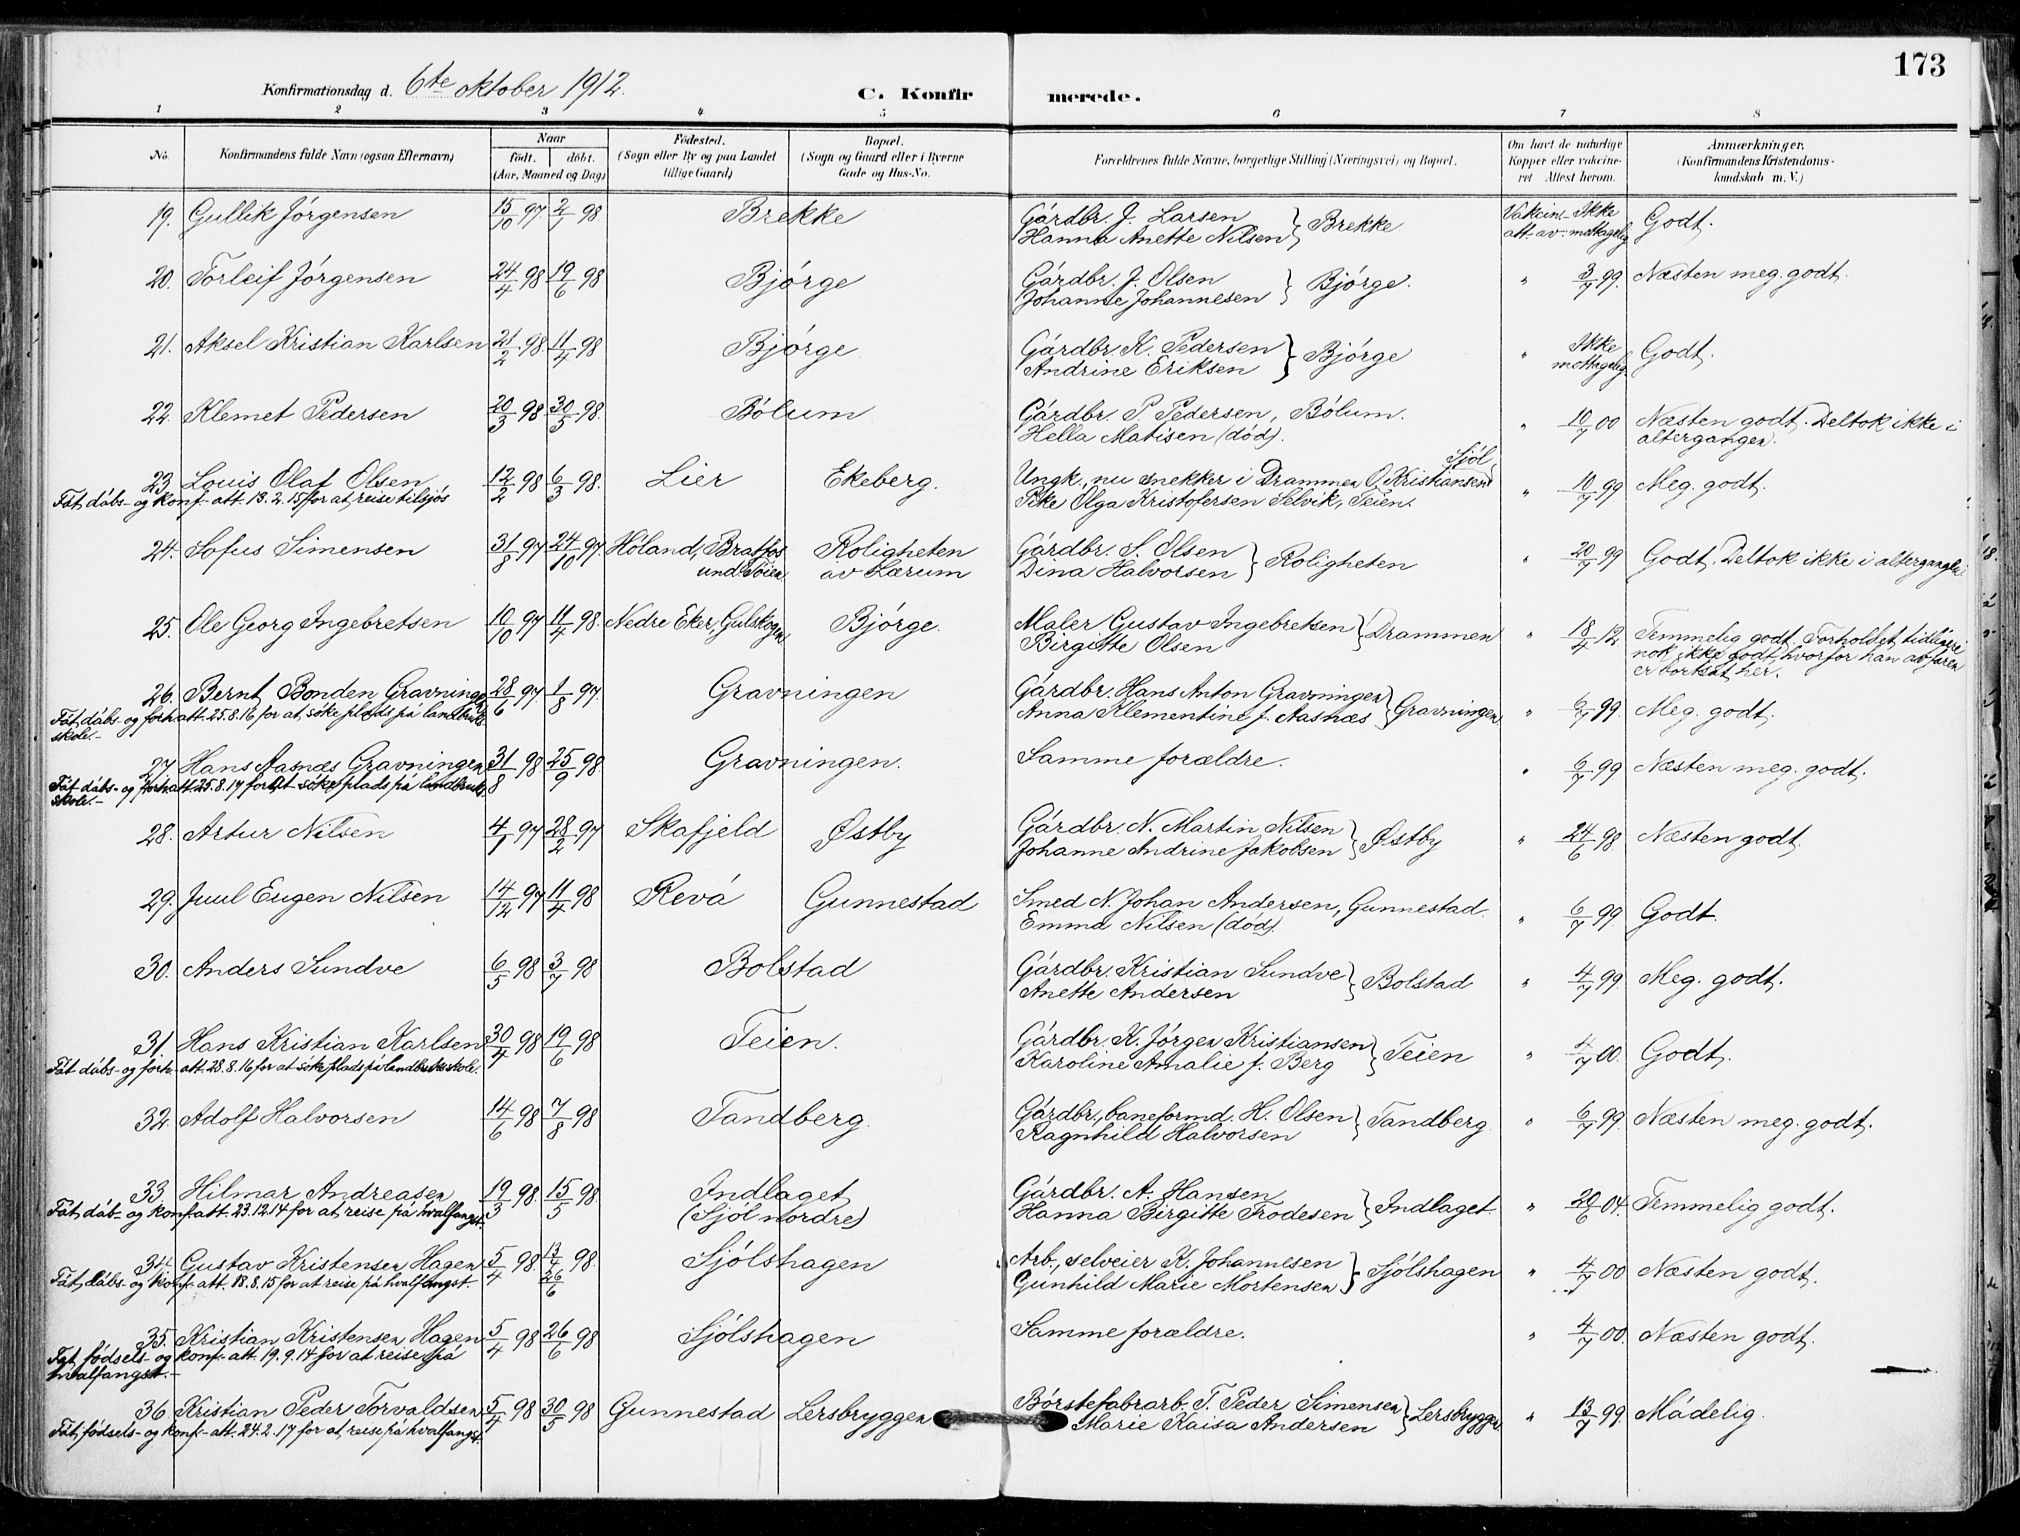 173
Konfirmationsdag d. 6te oktober 1912.
C. Konfirmerede.
1 2 3 4 5 6 7 8
No. Konfirmandens fulde Navn (ogsaa Efternavn) Naar født. døbt. (Aar, Maaned og Dag) Fødested. (Sogn eller By og paa Landet tillige Gaard) Bopæl. (Sogn og Gaard eller i Byerne Gade og Hus-No. Forældrenes fulde Navne, borgerlige Stilling (Næringsvei) og Bopæl. Om havt de naturlige Kopper eller vaccineret Attest herom. Anmærkninger. (Konfirmandens Kristendomskundskab m. V.)
19. Gullik Jörgensen 15/10 97 2/1 98 Brekke Gárdbr. J. Larsen Hanna Anette Nilsen } Brekke Vakcin.- att- av- Ikke mottagelig Godt.
20. Torleif Jörgensen 24/4 98 19/6 98 Bjórge Gárdbr. J. Olsen Johanne Johannesen } Bjórge. " 3/7 99. Næsten meg. godt.
21. Aksel Kristian Karlsen 21/2 98. 11/4 98 Bjórge Gárdbr. K. Pedersen Andrine Eriksen } Bjórge " Ikke mottagelig. Godt.
22. Klemet Pedersen 20/3 98 30/5 98. Bólum Gárdbr. P. Pedersen, Bólum. Hella Matisen (dód). " 10/7 00 Næsten godt. Deltok ikke i altergangen.
23. Louis Olaf Olsen 12/2 98 6/3 98. Lier Ekeberg. Ungk., nu snekker i Drammen O. Kristiansen Sjól Pike Olga Kristofersen Selvik, Teien. " 10/7 99 Meg. godt.
Fåt dábs- og konf- att. 13.2.15 for at reise tilsjós
24. Sofus Simensen 31/8 97 24/10 97 Hóland, Bratfos und. Tóien Roligheten av Lærum Gárdbr. S. Olsen Dina Halvorsen } Roligheten " 20/7 99 Godt. Deltok ikke i altergangen.
25. Ole Georg Ingebretsen 10/10 97 11/4 98. Nedre Eker, Gulskogen Bjórge. Maler Gustav Ingebretsen Birgitte Olsen } Drammen " 18/4 12. Temmelig godt. Forholdet tidligere nok ikke godt, hvorfor han av faren er bortsat her.
26. Bernt Bonden Gravningen 28/6 97. 1/8 97. Gravningen Gárdbr. Hans Anton Gravningen Anna Klementine f. Aasnæs } Gravningen " 6/7 99. Meg. godt.
Fåt dábs- og forh. att. 25.8.16 for at söke plads på landbruksskole.-
27. Hans Aasnæs Gravningen 31/8 98 25/9 98. Gravningen. Samme forældre. " 6/7 99 Næsten meg. godt.
Fåt dábs- og forh att 25.8.17 for at söke plads på landbruksskole.-
28. Artur Nilsen 4/1 97 28/2 97 Skafjeld Østby Gárdbr. N. Martin Nilsen Johanne Andrine Jakobsen } Østby " 24/6 98. Næsten godt.
29. Juul Eugen Nilsen 14/12 97 11/4 98 Revá Gunnestad Smed N. Johan Andersen, Gunnestad. Emma Nilsen (dód). " 6/7 99. Godt.
30. Anders Sundve 6/5 98 3/7 98 Bolstad Gárdbr. Kristian Sundve Anette Andersen } Bolstad " 4/7 99. Meg. godt.
31. Hans Kristian Karlsen 30/4 98 19/6 98 Teien. Gárdbr. K. Jórgen Kristiansen Karoline Amalie f. Berg } Teien " 4/7 00. Godt.
Fåt dábs- og forh.- att. 28.8.16 for at söke plads på landbruksskole.
32. Adolf Halvorsen 14/6 98 7/8 98 Tandberg. Gárdbr., baneformd. H. Olsen Ragnhild Halvorsen } Tandberg. " 6/7 99. Næsten meg. godt.
33. Hilmar Andreasen 19/3 98. 15/5 98 Indlaget (Sjól nordre) Gárdbr. A. Hansen Hanna Birgitte Frodesen } Indlaget. " 20/6 04. Temmelig godt.
Fåt dáb- og konf att. 23.12.14 for at reise på hvalfangst.
34. Gustav Kristensen Hagen 5/4 98 13/4 98. 26/6 Sjólshagen Arb., selveier K. Johannesen Gunhild Marie Mortensen } Sjólshagen " 4/7 00 Næsten godt.
Fåt dábs- og konf- att. 18.8.15 for at reise på hvalfangst.
35. Kristian Kristensen Hagen 5/4 98 26/6 98 Sjólshagen Samme forældre. " 4/7 00. Næsten godt.
Fåt fødsels- og konf- att. 19.9.14 for at reise på hvalfangst.-
36 Kristian Peder Torvaldsen 5/4 98 30/5 98 Gunnestad Lersbryggen Bórstefabrarb. T. Peder Simensen Marie Kaisa Andersen } Lersbryggen " 13/7 99. Mádelig.
Fåt fødsels- og konf- att. 24.2.17 for at reise på hvalfangst.